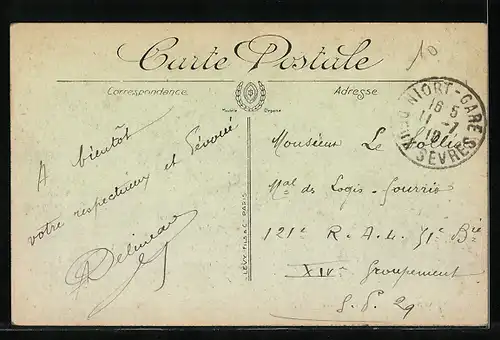 Carte Postale
Correspondance
Adresse
NIORT-GARE
16 5
11 -7
DEUX SEVRES
A bientôt
votre respectueux et dévoué
Delineau
LEVY FILS & Cie PARIS
Monsieur Le
Mal des Logis - Fourrier
121e R. A. L. 31e Bie
XIVe Groupement
S. P. 29